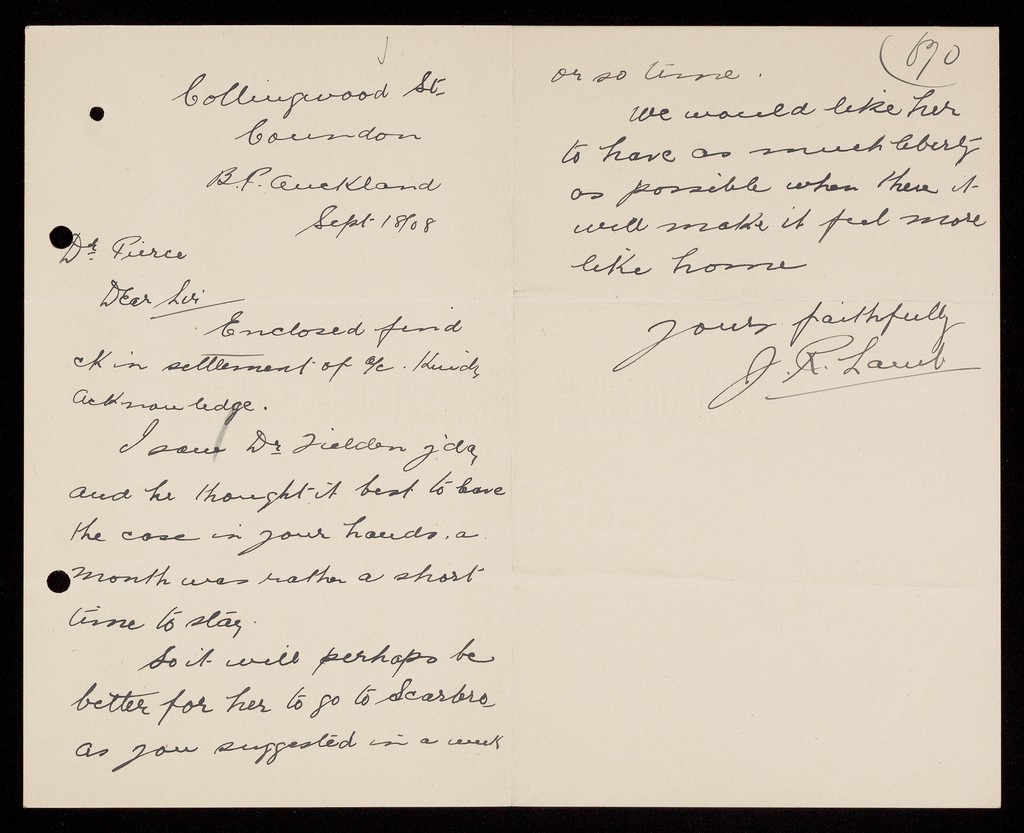 Collingwood St.
Coundon
B.P. Auckland
Sept 18/08
Dr. Pierce
Dear Sir
Enclosed find
ck in settlement of a/c. Kindly
acknowledge.
I saw Dr. Fielden y'day
and he thought it best to leave
the case in your hands. a
month was rather a short
time to stay.
So it will perhaps be
better for her to go to Scarbro
as you suggested in a week
(690
or so time.
We would like her
to have as much liberty
as possible when there it
will make it feel more
like home
Yours faithfully
J. R. Lamb